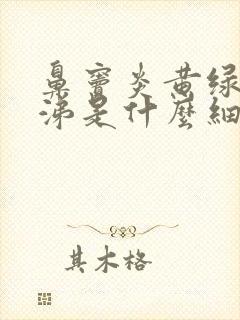 鼻竇炎黄绿
涕是什麼細
其木格